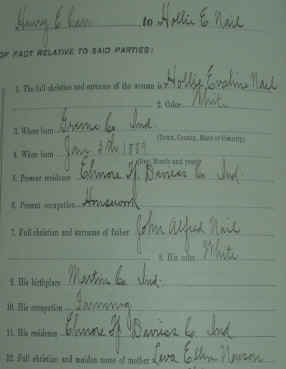 Henry E. Carr to Hollie E. Nail
OF FACT RELATIVE TO SAID PARTIES:
1. The full christian and surname of the woman is Hollie Evaline Nail
2. Color White
3. Where born Greene Co Ind.
(Town, County, State or Country)
4. When born Jan 5th 1889
(Day, Month and year)
5. Present residence Elmore Tp Daviess Co Ind
6. Present occupation Housework
7. Full christian and surname of father John Alfred Nail
8. His color White
9. His birthplace Martin Co Ind.
10. His occupation Farming
11. His residence Elmore Tp Daviess Co Ind
12. Full christian and maiden name of mother Ellen